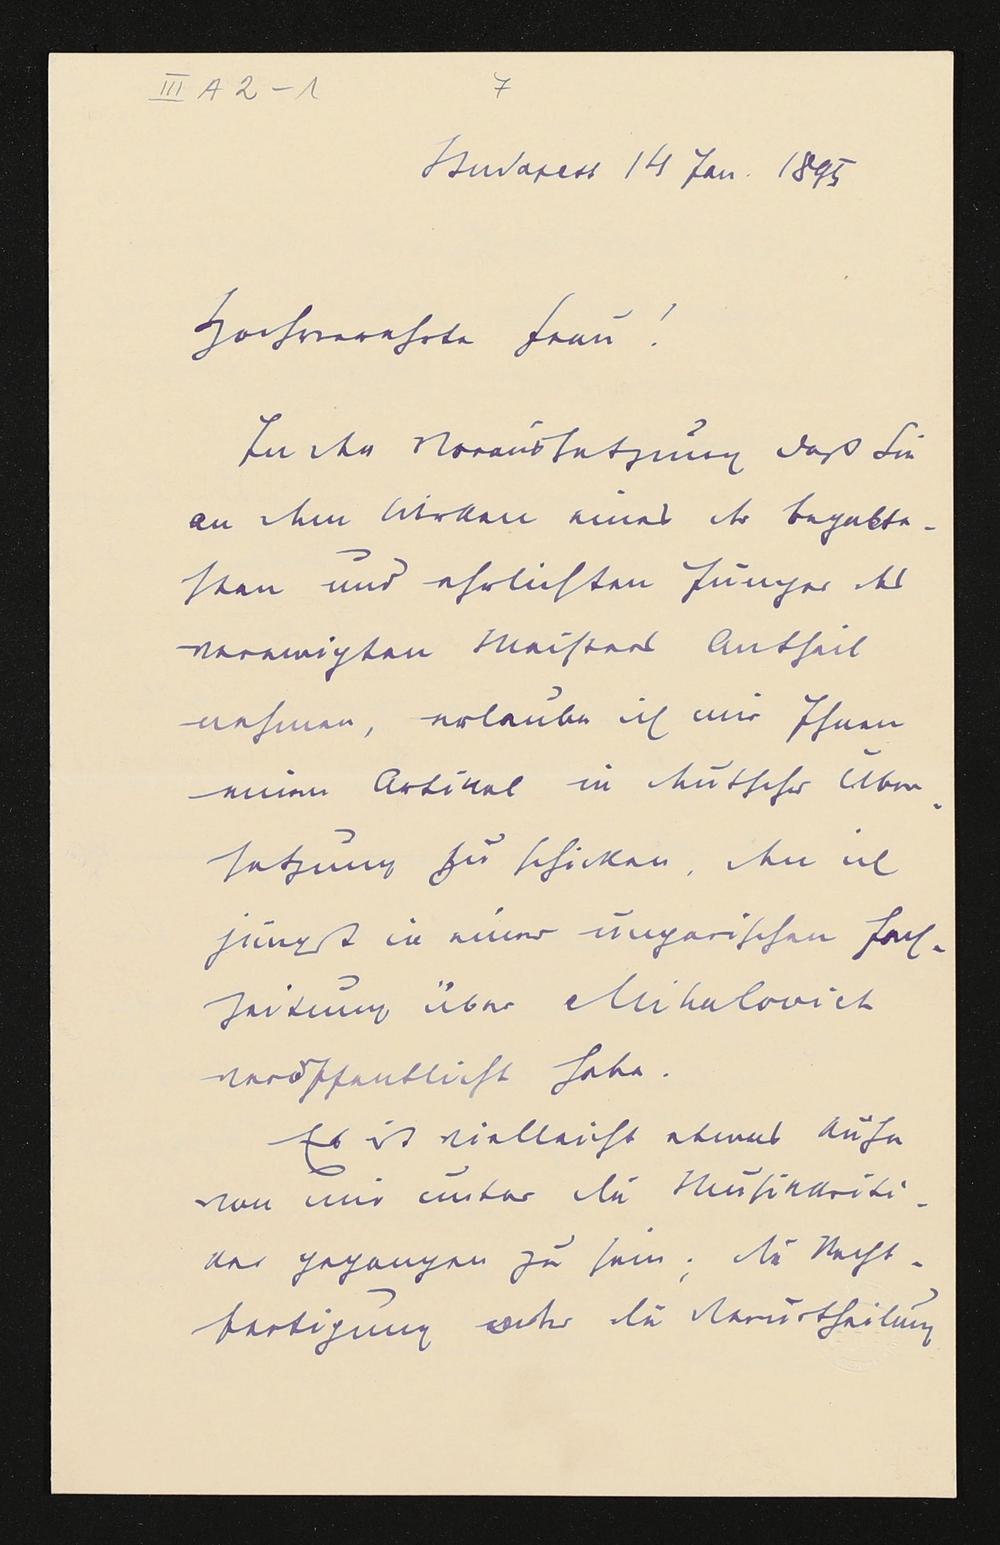 III A 2-1 7
Budapest 14 Jan. 1895
Hochverehrte Frau!
In der Voraussetzung daß Sie
an dem Wirken eines der begabte-
sten und ehrlichsten Jünger des
verewigten Meisters Antheil
nehmen, erlaube ich mir Ihnen
meinen Artikel in deutscher Über-
setzung zu schicken, den ich
jüngst in einer ungarischen Fach-
zeitung über Mihalovich
veröffentlicht habe.
Es ist vielleicht etwas kühn
von mir unter die Musikkriti-
ker gegangen zu sein; die Recht-
fertigung oder die Verurtheilung